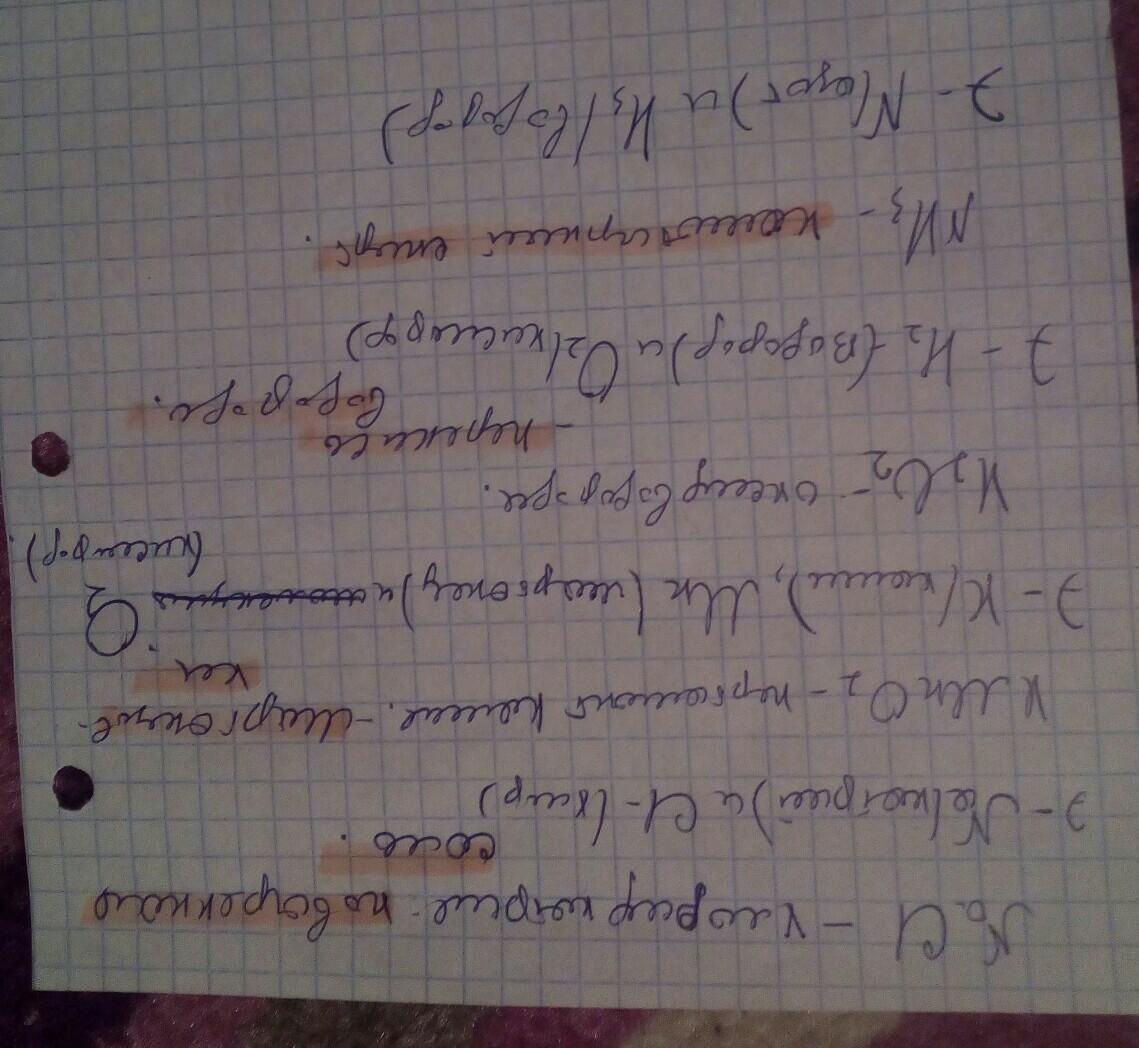 NaCl – хлорид натрия - поваренная
соль.
Э – Na(натрий) и Cl - (хлор)
KMnO2 – перманганат калия. – марганцов-
ка.
Э – K(калий), Mn (марганец) и O2
(кислород).
H2O2 – оксид водорода.
– перекись
водорода.
Э – H2 (Водород) и O2(кислород)
NH3 – нашатырный спирт.
Э – N(азот) и H3 (водород)